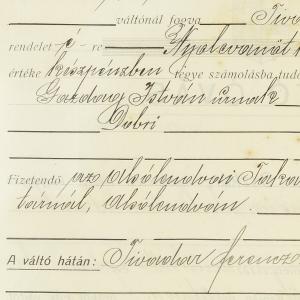 váltónál fogva Tiva
rendelet é-re Nyolcvanöt
értéke készpénzben tegye számolásba, tud
Gazdag István úrnak
Dobri
Fizetendő az alsólendvai Taka
tárnál, Alsólendván.
A váltó hátán: Tivadar Ferencz